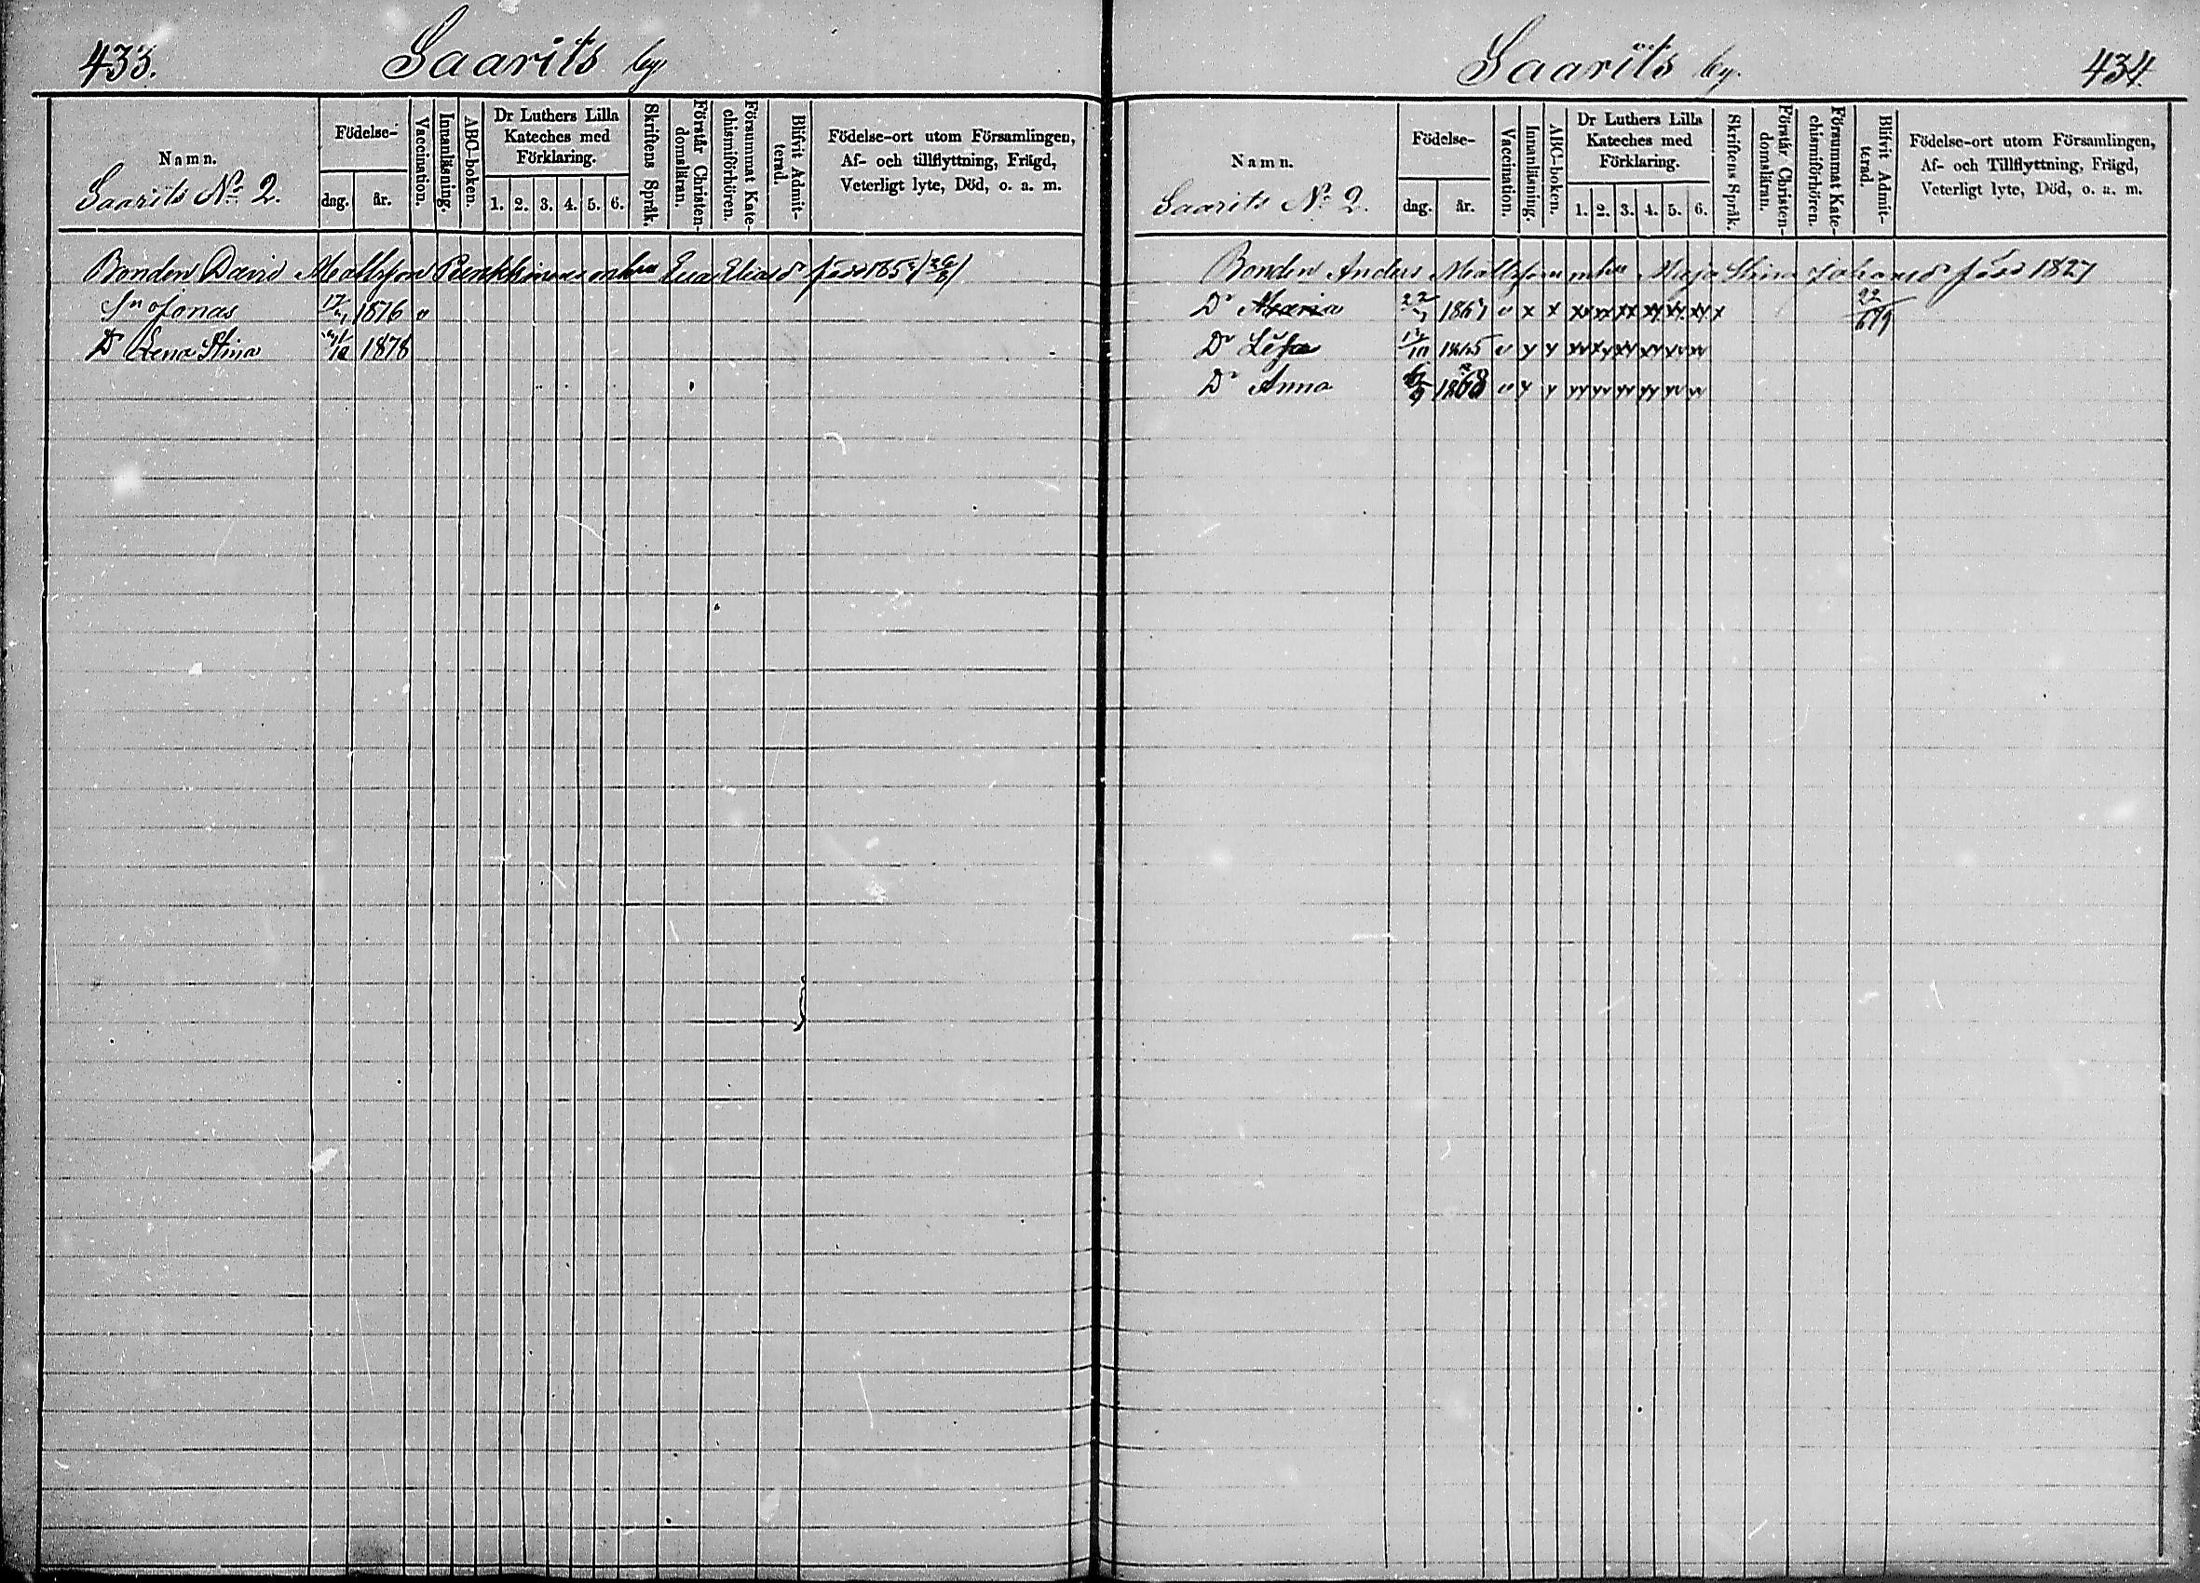 433.
Saarits by.
Namn.
Saarits No 2.
Födelse-
dag.
år.
Vaccination.
Innanläsning.
ABC-boken.
Dr Luthers Lilla
Kateches med
Förklaring.
1. 2. 3. 4. 5. 6.
Skriftens Språk.
Förstår Christen-
domsläran.
Försummat Kate-
chismiförhören.
Blifvit Admit-
terad.
Födelse-ort utom Församlingen,
Af- och tillflyttning, Frägd,
Veterligt lyte, Död, o. a. m.
Bonden David Mattsson m hu Eva Eliasdr född
Sn Jonas 1876 "
Dr Lena Stina 1878
Saarits by.
434.
Namn.
Saarits No 2.
Födelse-
dag.
år.
Vaccination.
Innanläsning.
ABC-boken.
Dr Luthers Lilla
Kateches med
Förklaring.
1. 2. 3. 4. 5. 6.
Skriftens Språk.
Förstår Christen-
domsläran.
Försummat Kate-
chismiförhören.
Blifvit Admit-
terad.
Födelse-ort utom Församlingen,
Af- och Tillflyttning, Frägd,
Veterligt lyte, Död, o. a. m.
Bonden Anders Mattsson m hu Maja Stina Johansdr född 1827
Dr Maria 22 v x x xx xx xx xx xx xx x 22/6 79
Dr Lisa 1865 v
Dr Anna 1868 v